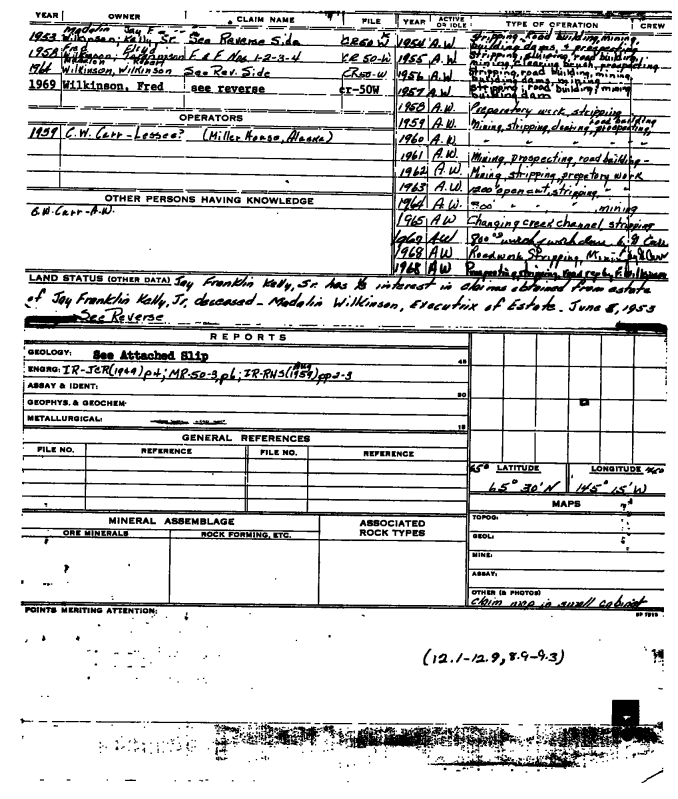 YEAR OWNER CLAIM NAME FILE YEAR ACTIVE OR IDLE TYPE OF OPERATION CREW
Madalin Jay F.
1953 Wilkinson; Kelly, Sr. See Reverse Side CR50-W
1958 Wilkinson, F & F Nos. 1-2-3-4 CR 50-W
1964 Wilkinson, Wilkinson See Rev. Side CR50-W
1969 Wilkinson, Fred see reverse cr-50W
OPERATORS
1959 C.W. Carr-Lessee? (Miller House, Alaska)
OTHER PERSONS HAVING KNOWLEDGE
C.W. Carr-A.W.
1954 A.W. Stripping, road building, mining, building dams, & prospecting
1955 A.W. Stripping, road building, mining, clearing brush, prospecting
1956 A.W. Stripping, road building, mining, building dams, mining
1957 A.W. Stripping, road building, mining building dam
1958 A.W. Preparatory work, stripping
1959 A.W. Mining, stripping, prospecting, road building
1960 A.W. " " " "
1961 A.W. Mining, prospecting, road building-
1962 A.W. Mining, stripping, prepatory work
1963 A.W. 1200' open cut, stripping, " "
1964 A.W. " " mining
1965 AW Changing creek channel, stripping
AW
1968 AW Roadwork Stripping, Mining
1968 AW Prospecting, stripping, road F. Wilkinson
LAND STATUS (OTHER DATA) Jay Franklin Kelly, Sr. has ½ interest in claims obtained from estate
of Jay Franklin Kelly, Jr. deceased - Madalin Wilkinson, Executrix of Estate. June 8, 1953
See Reverse
REPORTS
GEOLOGY: See Attached Slip
ENGRG: IR-JCR(1949) p4; MR-50-3, p6; IR-RHS(Aug 1959) pp2-3
ASSAY & IDENT:
GEOPHYS. & GEOCHEM:
METALLURGICAL:
45
30
15
GENERAL REFERENCES
FILE NO. REFERENCE FILE NO. REFERENCE
65° LATITUDE LONGITUDE
65° 30' N 145° 15' W
MAPS
TOPOG:
GEOL:
MINE:
ASSAY:
OTHER (& PHOTOS)
Claim map in small cabinet
MINERAL ASSEMBLAGE ASSOCIATED ROCK TYPES
ORE MINERALS ROCK FORMING, ETC.
POINTS MERITING ATTENTION:
(12.1-12.9, 8.9-9.3)